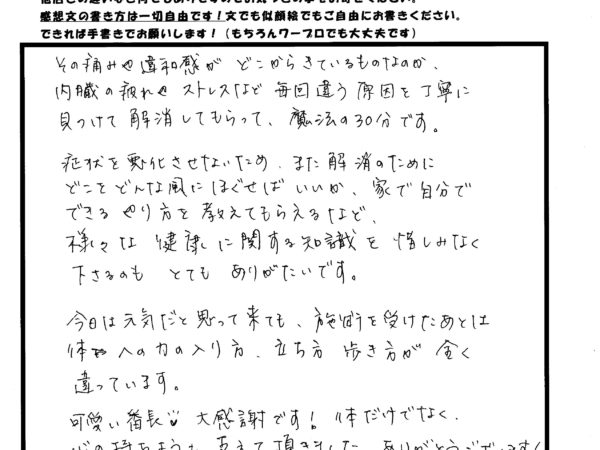 感想文の書き方は一切自由です！文でも似顔絵でもご自由にお書きください。
できれば手書きでお願いします！（もちろんワープロでも大丈夫です）
その痛みや違和感が どこからきているものなのか、
内臓の疲れや ストレスなど 毎回違う 原因を 丁寧に
見つけて 解消してもらって、 魔法の30分です。
症状を悪化させないため、また 解消のために
どこを どんな風に ほぐせば いいか、 家で自分で
できる やり方を 教えてもらえるなど、
様々な 健康に関する知識を 惜しみなく
下さるのも とても ありがたいです。
今日は元気だと思って来ても、施術を受けたあとは
体への力の入り方、立ち方 歩き方が 全く
違っています。
可愛い番長 大感謝です！ 体だけでなく、